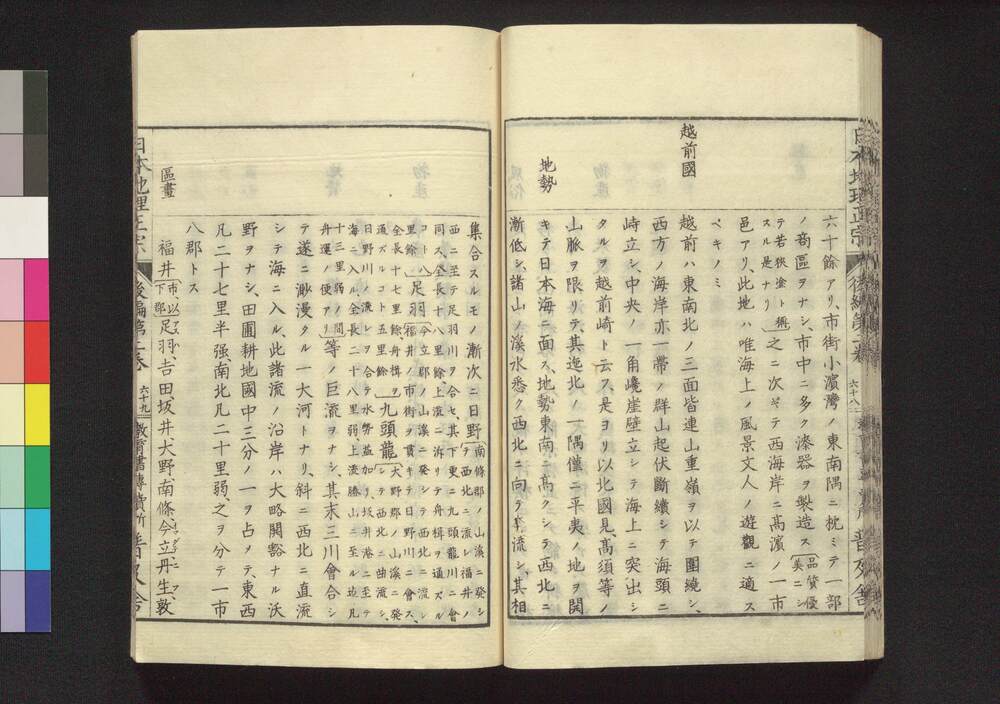 六十餘アリ、市街小濱灣ノ東南隅ニ枕ミテ一部
ノ商區ヲナシ、市中ニ多ク漆器ヲ製造ス〔品質優美ニシ
テ若狹塗ト稱スル是ナリ〕之ニ次ギテ西海岸ニ高濱ノ一市
邑アリ、此地ハ唯海上ノ風景文人ノ遊觀ニ適ス
ベキノミ
越前國
地勢
越前ハ東南北ノ三面皆連山重嶺ヲ以テ圍繞シ、
西方ノ海岸亦一帶ノ群山起伏斷續シテ海頭ニ
峙立シ、中央ノ一角巉崖壁立シテ海上ニ突出シ
タルヲ越前崎ト云ス、是ヨリ以北國見、高須等ノ
山脈ヲ限リテ、其迤北ノ一隅僅ニ平夷ノ地ヲ開
キテ日本海ニ面ス、地勢東南ニ高クシテ西北ニ
漸低シ、諸山ノ溪水悉ク西北ニ向テ奔流シ、其相
日本地理正宗
後編第二卷
六十八
普及舍
集合スルモノ漸次ニ日野〔南條郡ノ山溪ニ發シ
テ西北ニ流レ福井ノ
西ニ至テ足羽川ヲ合セ、其下東ニ九頭龍川ニ會
同ス、全長十八里餘、上流ニ泝リテ舟楫ヲ通ズル
コト八里餘〕足羽〔今立郡ノ山溪ニ發シテ西北ニ流レ
福井ノ市街ヲ貫キテ日野川ニ會ス、
全長十七里餘、舟楫ヲ通ズルコト五里餘〕九頭龍〔大野郡ノ山溪ニ發
シテ西北ニ曲流シ、
日野川ノ流レヲ合テ水勢益加ハリ、坂井港ニ至テ
海ニ入ル、全長二十八里弱、上流勝山ニ至ル迄凡
十三里弱ノ間舟運ノ便アリ〕等ノ巨流ヲナシ、其末三川會合シ
テ遂ニ渺漫タル一大河トナリ、斜ニ西北ニ直流
シテ海ニ入ル、此諸流ノ沿岸ハ大略開豁ナル沃
野ヲナシ、田圃耕地國中三分ノ一ヲ占ヲテ、東西
凡二十七里半强、南北凡二十里弱、之ヲ分テ一市
八郡トス
區畫
福井市、〔以下郡〕足羽、吉田坂井大野南條今立丹生、敦
日本地理正宗
後編第二卷
六十九
教育書專賣所
普及舍